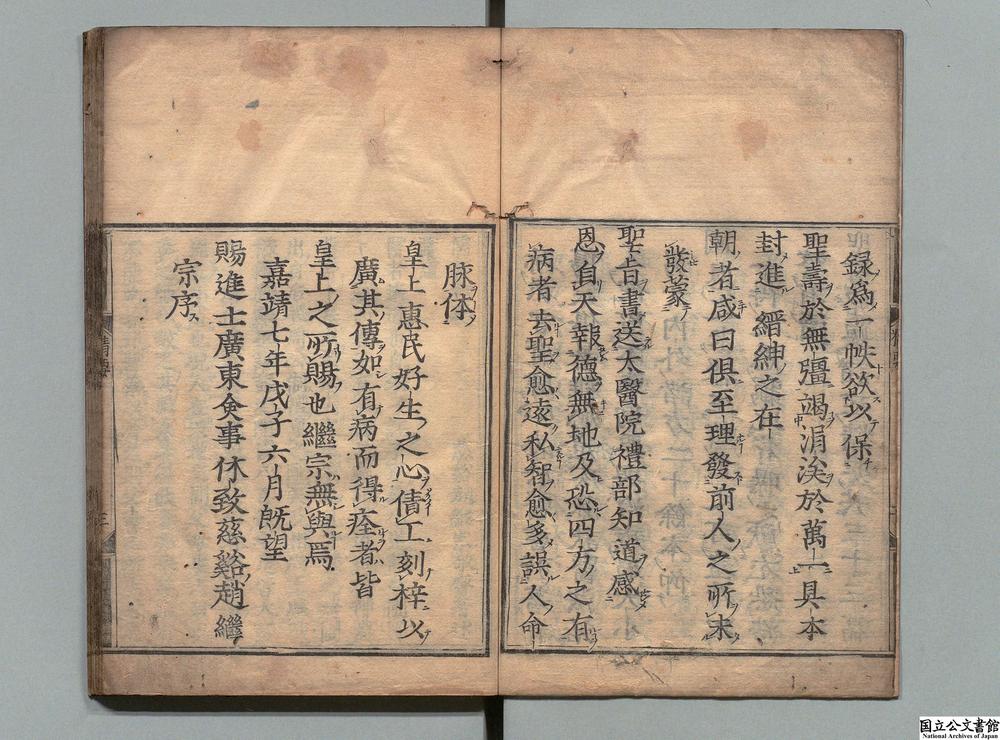 錄爲一帙欲以保
聖壽於無彊竭涓涘於萬一具本
封進縉紳之在
朝者咸曰俱至理發前人之所未
發蒙
聖旨書送太醫院禮部知道感
恩自天報德無地及恐四方之有
病者去聖愈遠私智愈多誤人命
脉体
皇上惠民好生之心倩工刻梓以
廣其傳如有病而得痊者皆
皇上之所賜也繼宗無與焉
嘉靖七年戊子六月旣望
賜進士廣東僉事休致慈谿趙繼
宗序
精要
三
国立公文書館
National Archives of Japan